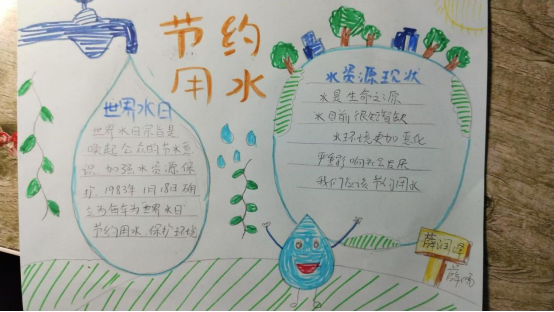 节约
用水
世界水日
世界水日宗旨是
唤起公众的节水意
识,加强水资源保
护,1983年10月18日确
立为每年为世界水日
节约用水,保护环境
水资源现状
水是生命之源
水目前很短暂缺
水环境更加恶化
严重影响社会发展
我们应该节约用水
薛润
薛